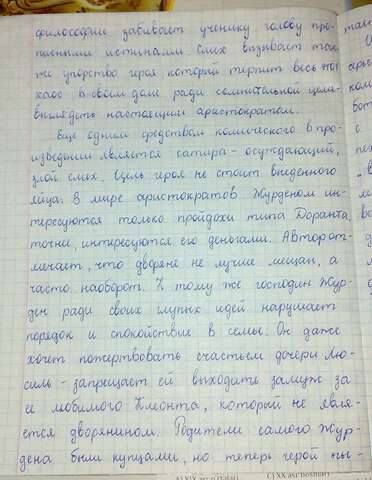 философии забивает ученику голову про-
писными истинами. Смех вызывает так-
же упорство героя который терпит весь этот
хаос в своём доме ради сомнительной цели-
выглядеть настоящим аристократом.
Еще одним средством комического в про-
изведении является сатира - осуждающий,
злой смех. Цель героя не стоит выеденного
яйца. В мире аристократов Журденом ин-
тересуются только пройдохи типа Доранта,
точнее, интересуются его деньгами. Автор от-
мечает, что дворяне не лучше мещан, а
часто наоборот. К тому же господин Жур-
ден ради своих глупых идей нарушает
порядок и спокойствие в семье. Он даже
хочет пожертвовать счастьем дочери Лю-
силь - запрещает ей выходить замуж за
ее любимого Клеонта, который не явля-
ется дворянином. Родители самого Жур-
дена были купцами, но теперь герой пы-